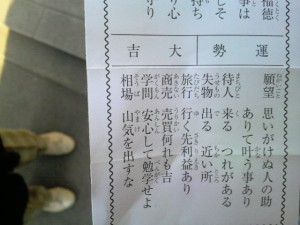 福徳
事は
しそ
持ち
り心
守り
運勢
大吉
願望 思いがけぬ人の助
ありて叶う事あり
待人 来る つれがある
失物 出る 近い所
旅行 行く先利益あり
商売 売買何れも吉
学問 安心して勉学せよ
相場 山気を出すな